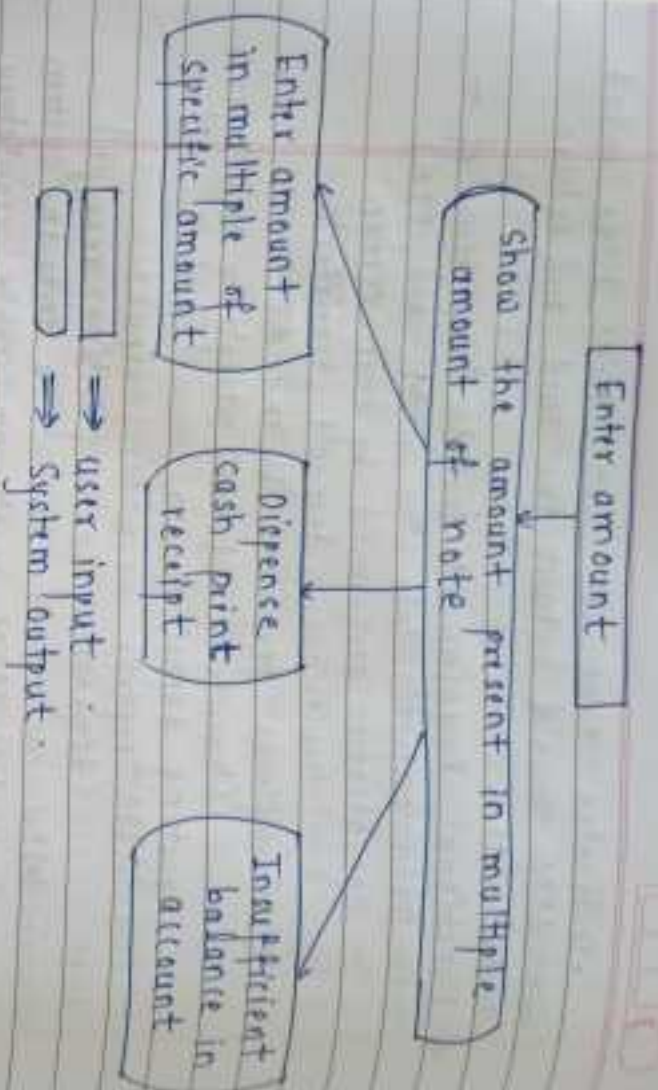 Enter amount
Show the amount present in multiple
amount of note
Enter amount
in multiple of
specific amount
Dispense
cash print
receipt
Insufficient
balance in
account
⇒ user input.
⇒ System output.